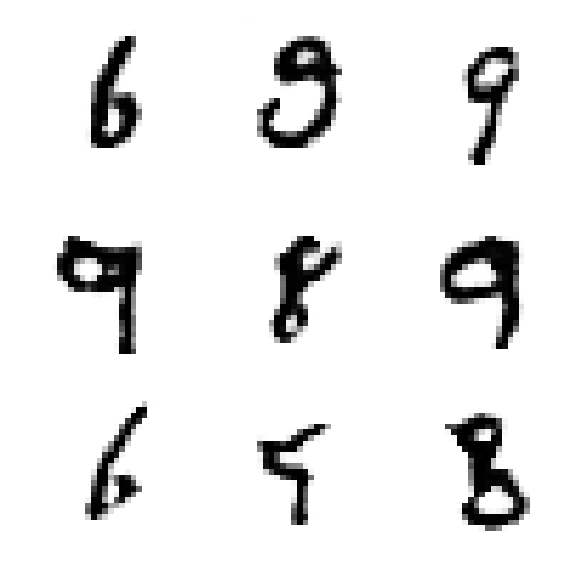 6 9 9
9 8 9
6 5 8